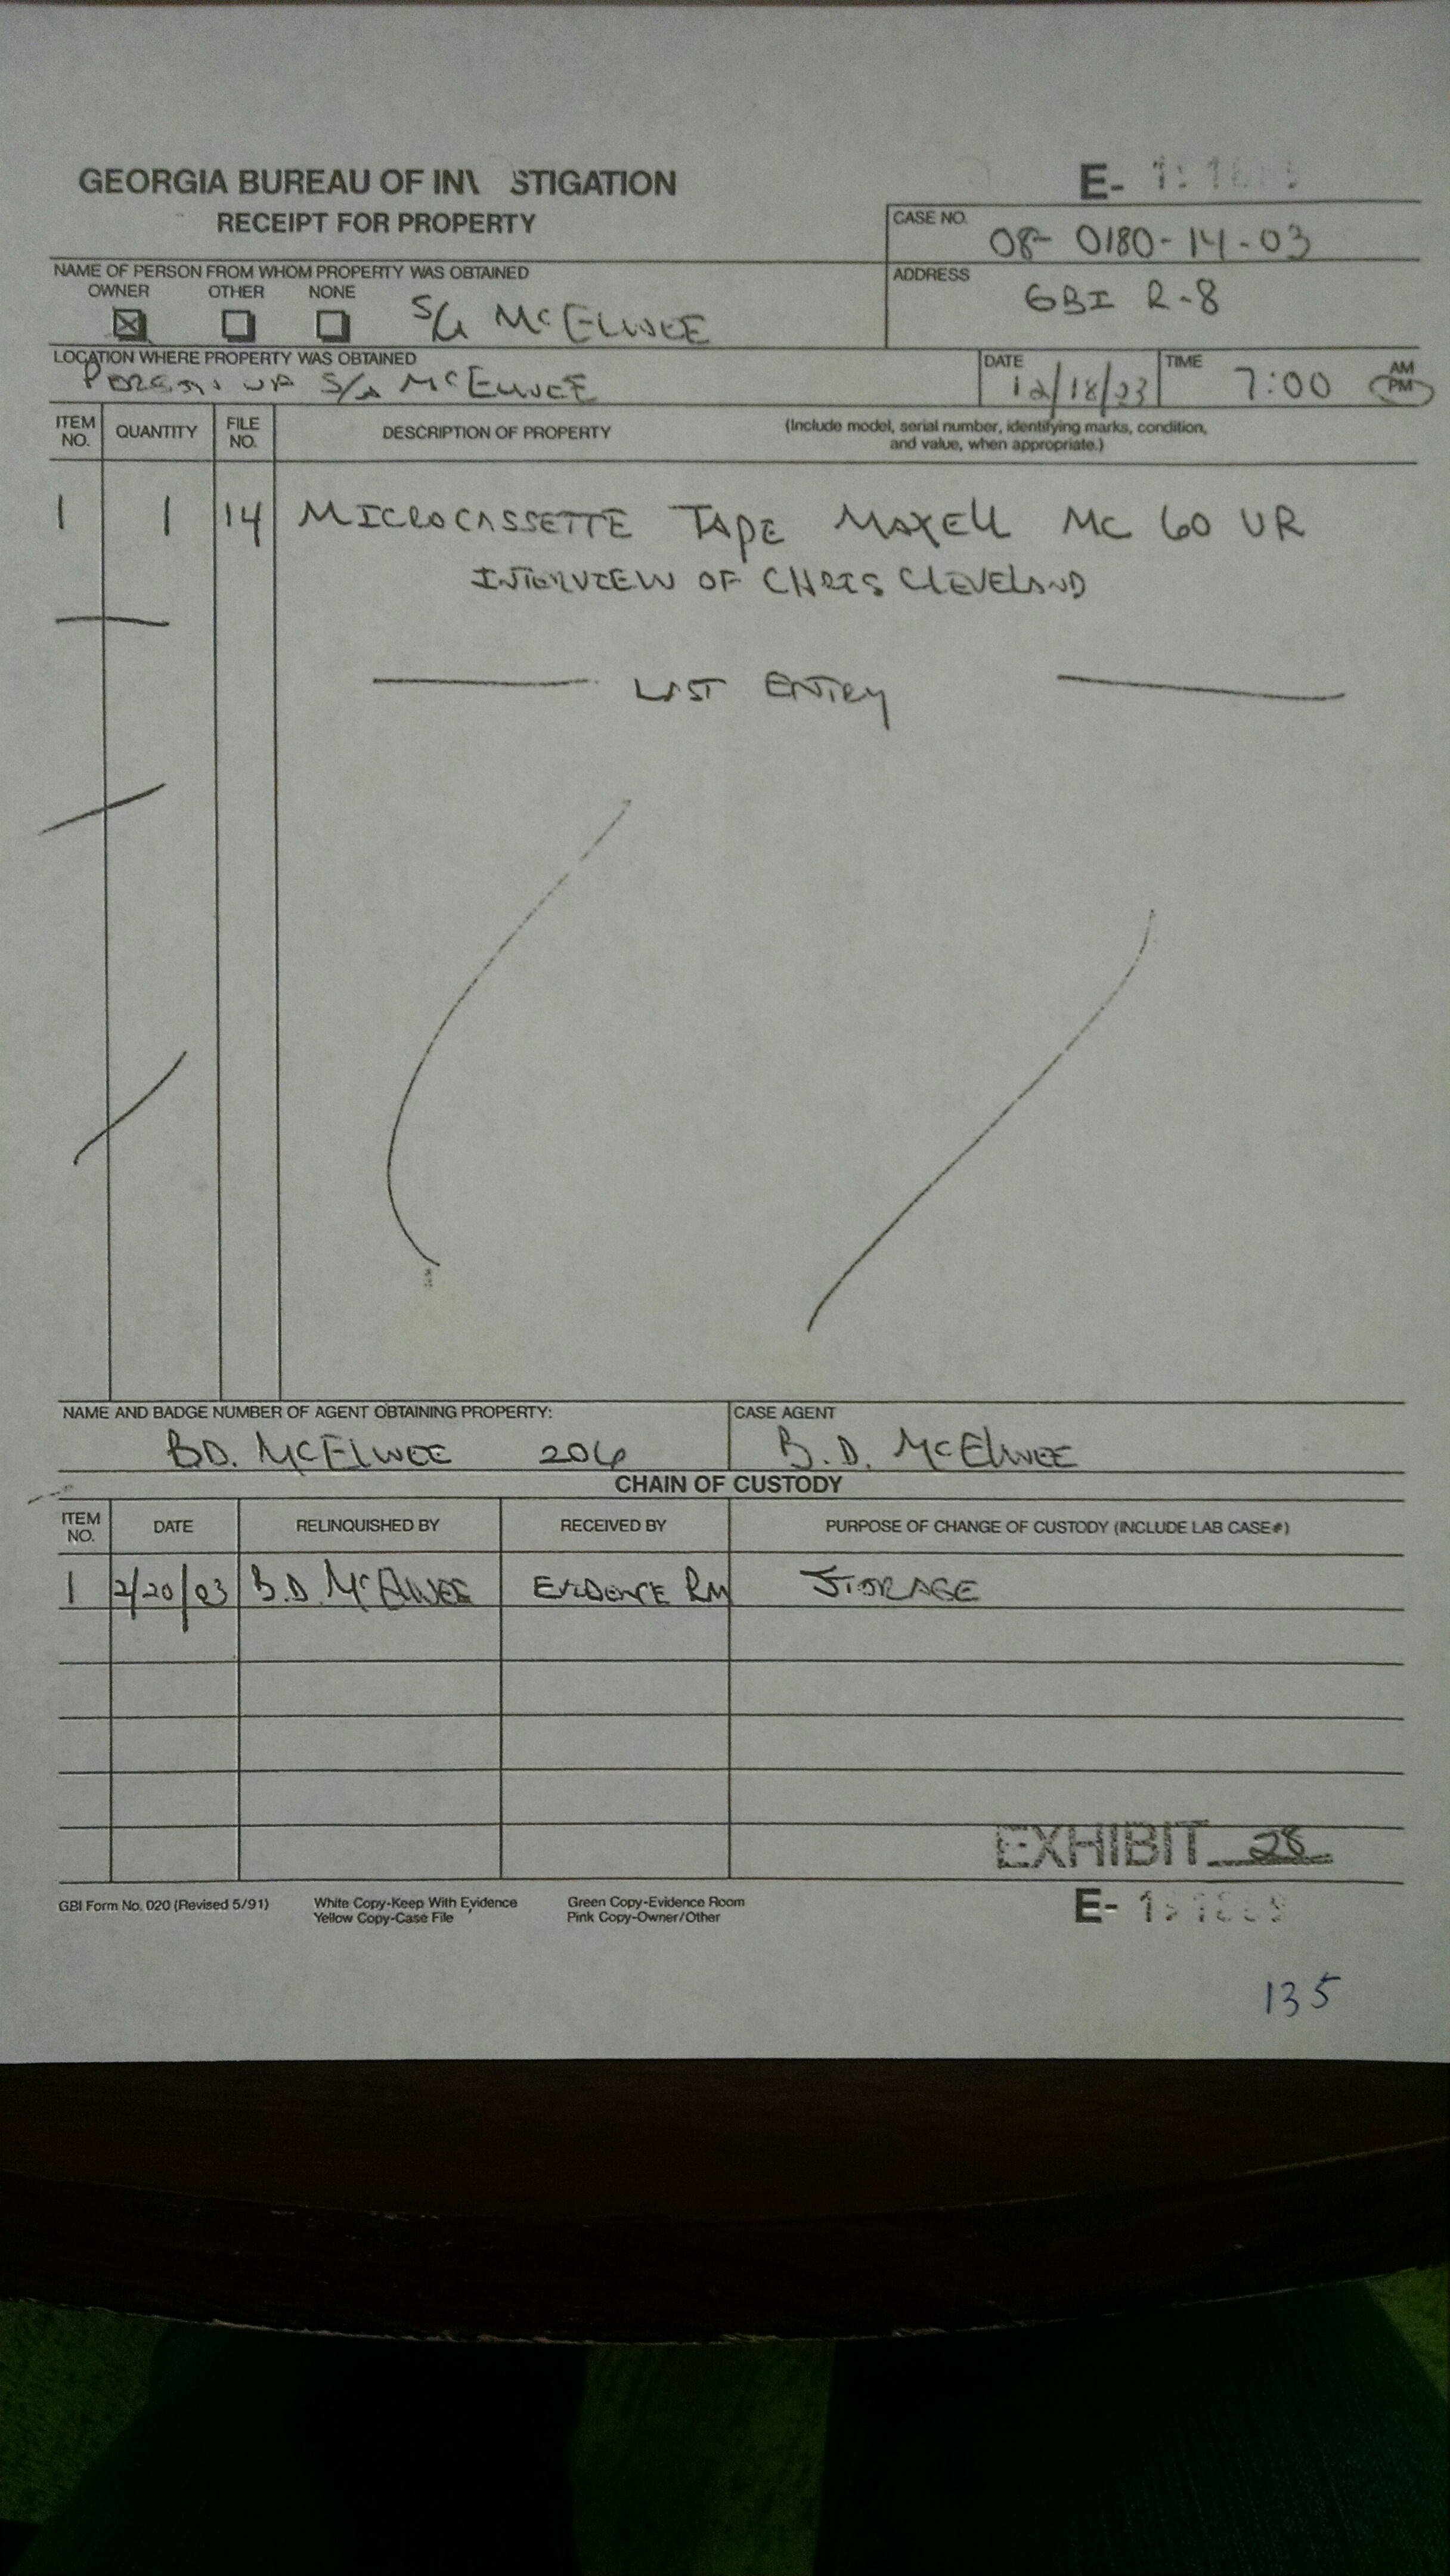 GEORGIA BUREAU OF INV STIGATION
RECEIPT FOR PROPERTY
E-
CASE NO. 08-0180-14-03
NAME OF PERSON FROM WHOM PROPERTY WAS OBTAINED
OWNER OTHER NONE
S/A McELWEE
ADDRESS
GBI R-8
LOCATION WHERE PROPERTY WAS OBTAINED
PERSON OF S/A McELWEE
DATE 12/18/03
TIME 7:00 AM PM
ITEM NO. QUANTITY FILE NO. DESCRIPTION OF PROPERTY (Include model, serial number, identifying marks, condition,
and value, when appropriate.)
1 1 14 MICROCASSETTE TAPE MAXELL MC 60 UR
INTERVIEW OF CHRIS CLEVELAND
LAST ENTRY
NAME AND BADGE NUMBER OF AGENT OBTAINING PROPERTY:
BD. McELWEE 206
CASE AGENT
B.D. McELWEE
CHAIN OF CUSTODY
ITEM NO. DATE RELINQUISHED BY RECEIVED BY PURPOSE OF CHANGE OF CUSTODY (INCLUDE LAB CASE#)
1 12/20/03 B.D. McELWEE EVIDENCE RM STORAGE
EXHIBIT 28
GBI Form No. 020 (Revised 5/91) White Copy-Keep With Evidence Green Copy-Evidence Room
Yellow Copy-Case File Pink Copy-Owner/Other
E-
135